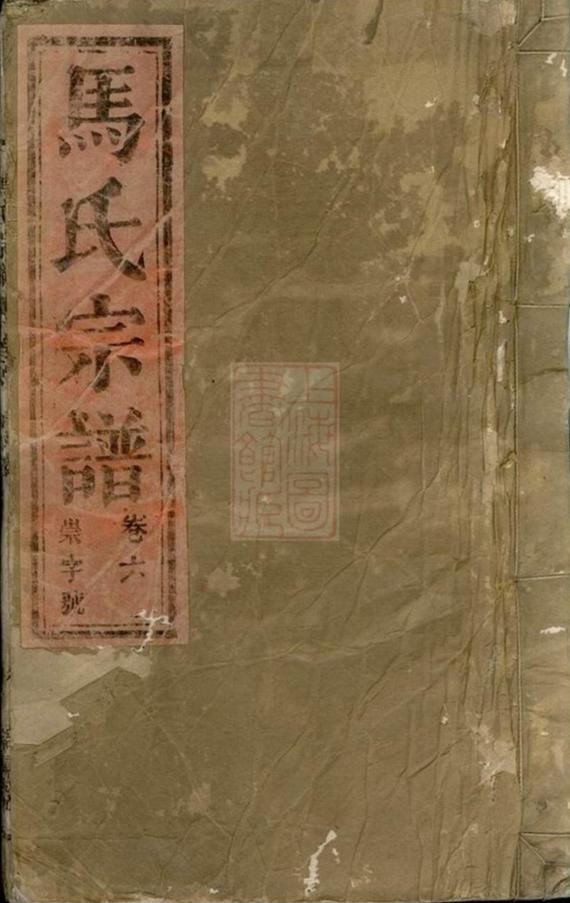 馬氏宗譜
卷六
崇字號
上海圖
書館藏